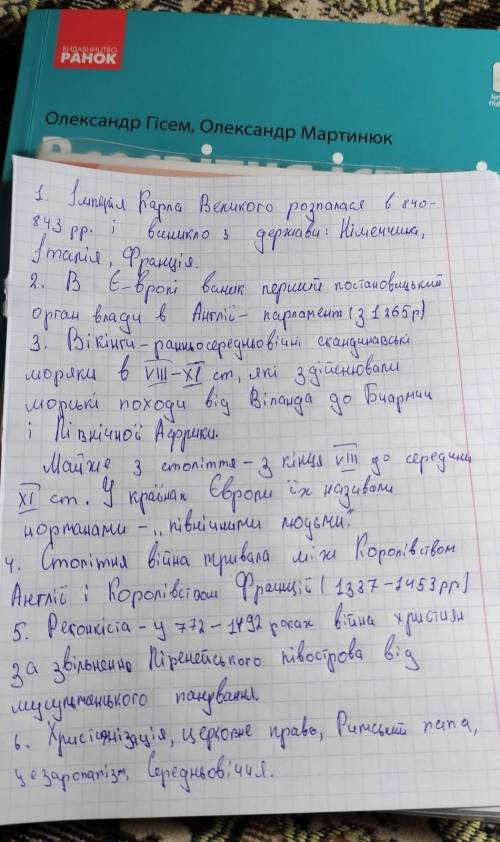 ВИДАВНИЦТВО
РАНОК
Олександр Гісем, Олександр Мартинюк
1. Імперія Карла Великого розпалася в 840-
843 рр. і виникло 3 держави: Німеччина,
Італія, Франція.
2. В Є-вропі виник перший постановицький
орган влади в Англії - парламент (з 1265р)
3. Вікінги - ранньосередньовічні скандинавські
моряки в VIII-XI ст, які здійснювали
морські походи від Вінланда до Биармии
і Північної Африки.
Майже 3 століття - з кінця VIII до середини
XI ст. У країнах Європи їх називали
норманами - „північними людьми".
4. Столітня війна тривала між Королівством
Англії і Королівством Франції (1337-1453рр)
5. Реконкіста - у 772-1492 роках війна християн
за звільнення Піренейського півострова від
мусульманського панування.
6. Християнізація, церковне право, Римський папа,
цезаропапізм, Середньовіччя.